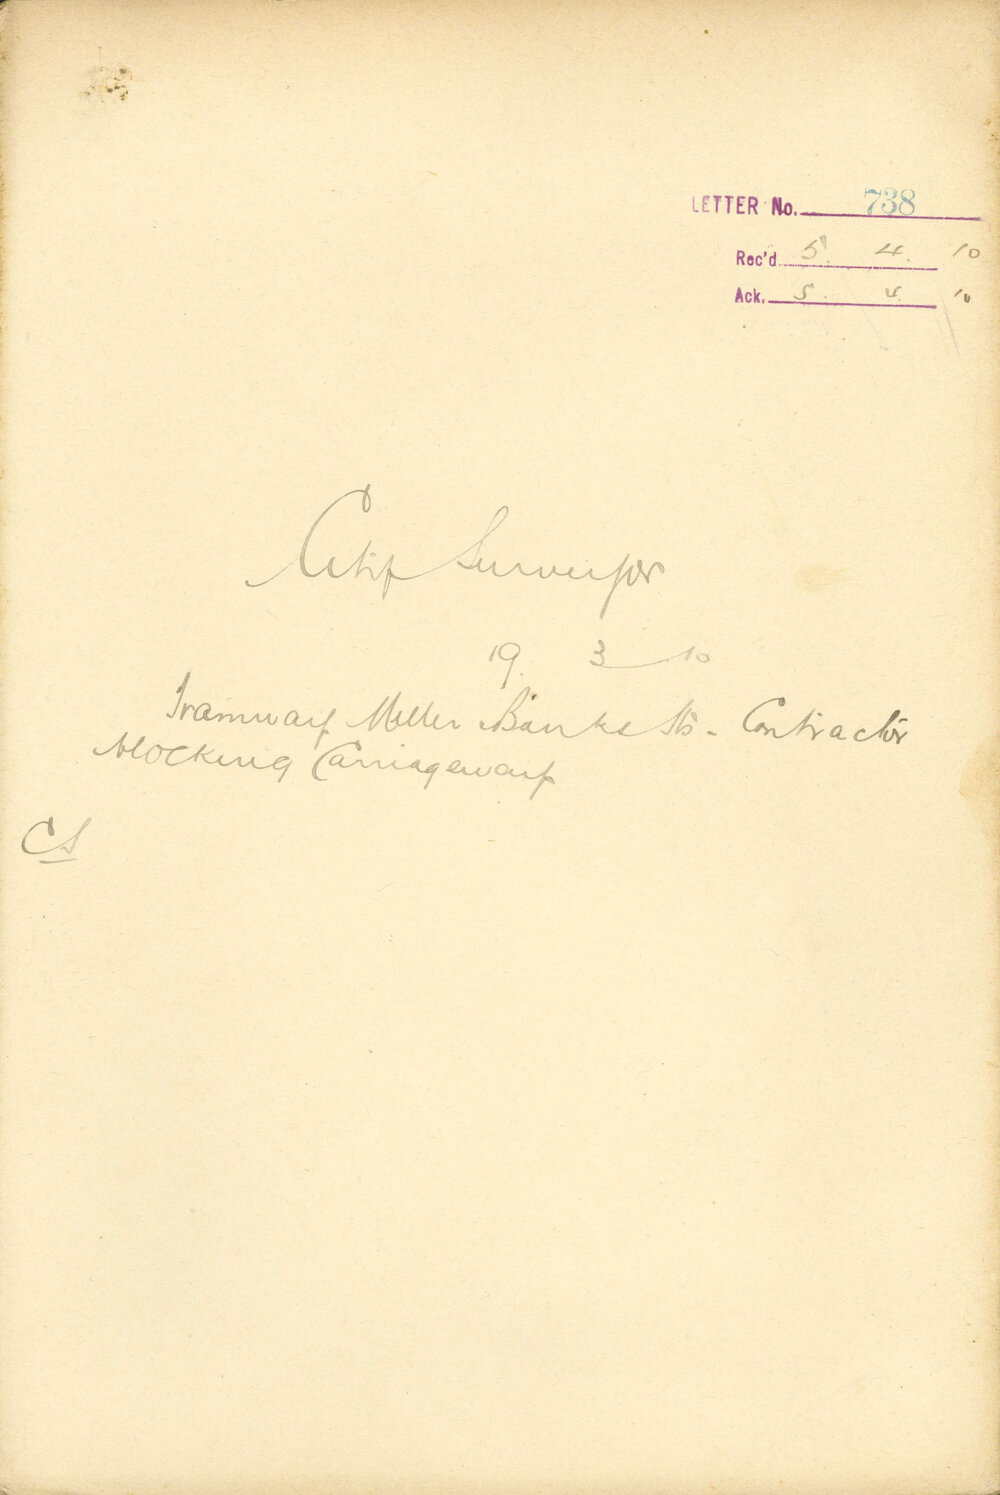 LETTER No. 738
Rec'd 5. 4. 10
Ack. 5. 4. 10
City Surveyor
19. 3 10
Tramway Miller Banks Sts - Contractor
blocking Carriageway
CS